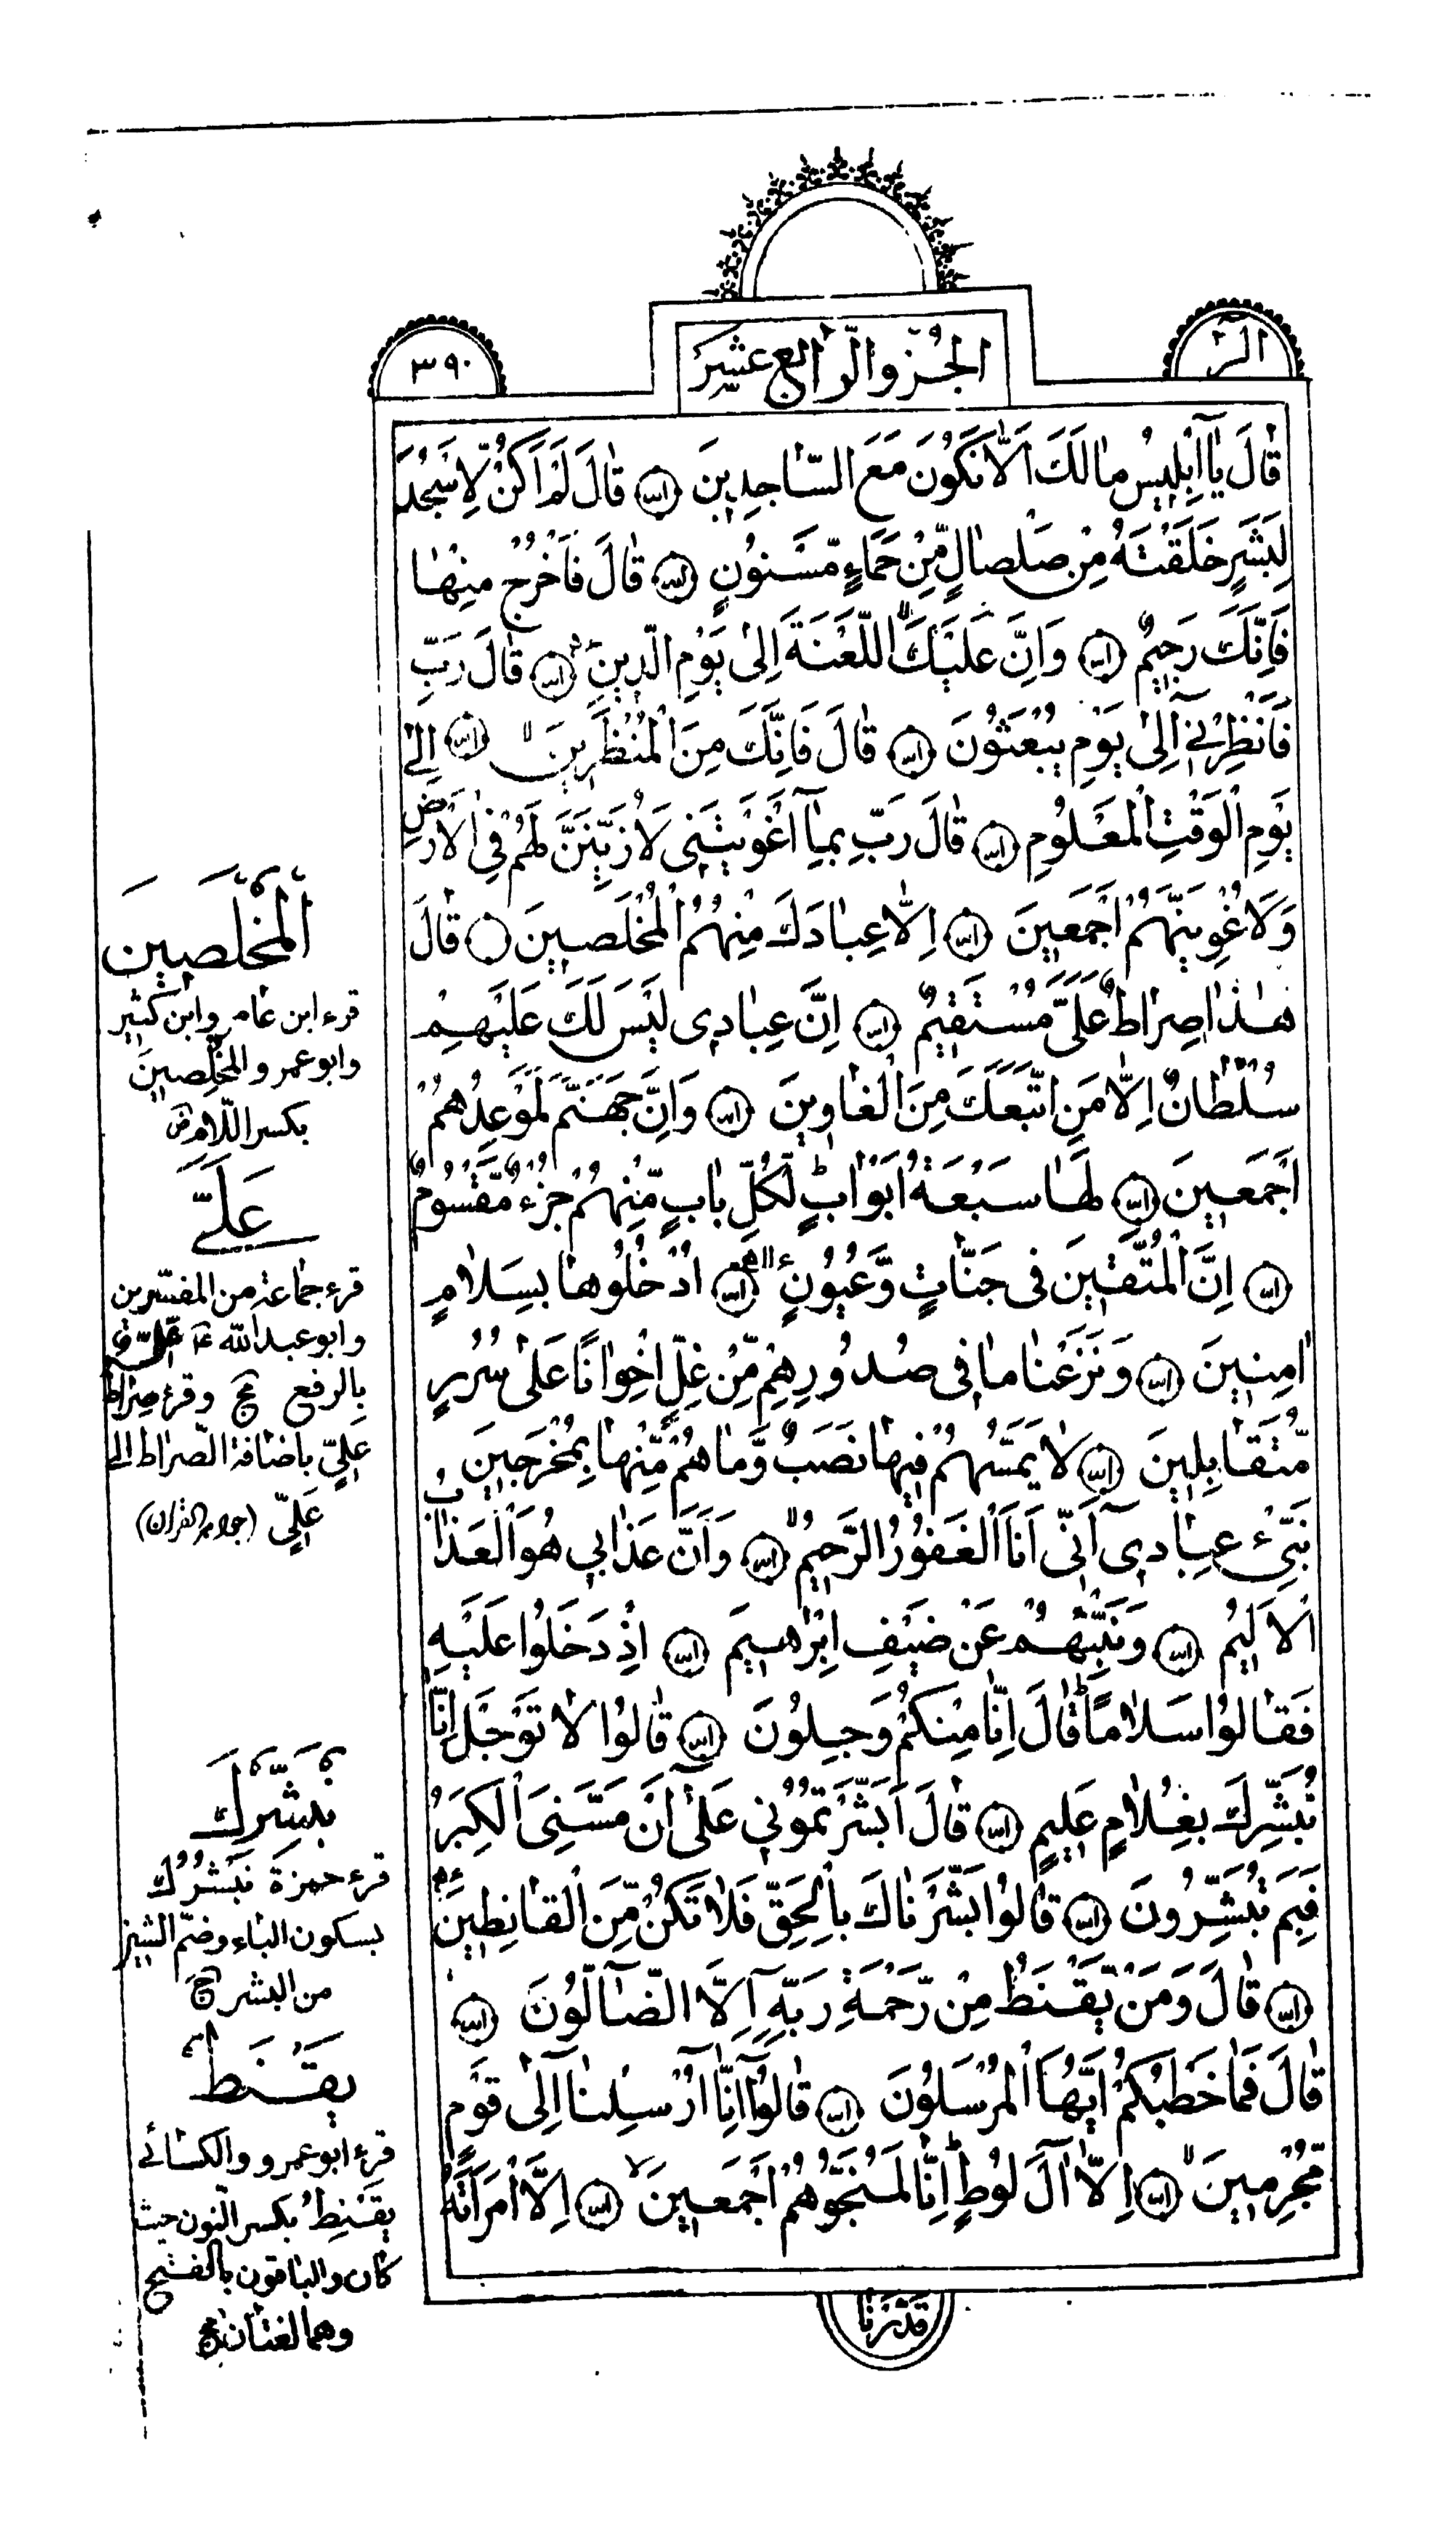 الۤرۤ
الجُزْوالرّابع عشَر
٣٩٠
قٰالَ يٰآ اِبْلِيسُ مٰا لَكَ اَلّٰا تَكُونَ مَعَ السّٰاجِدِينَ ۝ قٰالَ لَمْ اَكُنْ لِاَسْجُدَ
لِبَشَرٍ خَلَقْتَهُ مِنْ صَلْصٰالٍ مِّنْ حَمَاءٍ مَّسْنُونٍ ۝ قٰالَ فَاخْرُجْ مِنْهٰا
فَاِنَّكَ رَجِيمٌ ۝ وَاِنَّ عَلَيْكَ اللَّعْنَةَ اِلىٰ يَوْمِ الدِّينِ ۝ قٰالَ رَبِّ
فَاَنْظِرْنِىۤ اِلىٰ يَوْمِ يُبْعَثُونَ ۝ قٰالَ فَاِنَّكَ مِنَ الْمُنْظَرِينَ ۝ اِلىٰ
يَوْمِ الْوَقْتِ الْمَعْلُومِ ۝ قٰالَ رَبِّ بِمٰاۤ اَغْوَيْتَنِى لَاُزَيِّنَنَّ لَهُمْ فِى الْاَرْضِ
وَلَاُغْوِيَنَّهُمْ اَجْمَعِينَ ۝ اِلّٰا عِبٰادَكَ مِنْهُمُ الْمُخْلَصِينَ ۝ قٰالَ
هٰذٰا صِرٰاطٌ عَلَىَّ مُسْتَقِيمٌ ۝ اِنَّ عِبٰادِى لَيْسَ لَكَ عَلَيْهِمْ
سُلْطٰانٌ اِلّٰا مَنِ اتَّبَعَكَ مِنَ الْغٰاوِينَ ۝ وَاِنَّ جَهَنَّمَ لَمَوْعِدُهُمْ
اَجْمَعِينَ ۝ لَهٰا سَبْعَةُ اَبْوٰابٍ لِّكُلِّ بٰابٍ مِّنْهُمْ جُزْءٌ مَّقْسُومٌ
۝ اِنَّ الْمُتَّقِينَ فى جَنّٰاتٍ وَّعُيُونٍ ۝ اُدْخُلُوهٰا بِسَلٰامٍ
اٰمِنِينَ ۝ وَنَزَعْنٰا مٰا فى صُدُورِهِمْ مِّنْ غِلٍّ اِخْوٰانًا عَلىٰ سُرُرٍ
مُّتَقٰابِلِينَ ۝ لٰا يَمَسُّهُمْ فِيهٰا نَصَبٌ وَّمٰا هُمْ مِّنْهٰا بِمُخْرَجِينَ
نَبِّئْ عِبٰادِىۤ اَنِّى اَنَا الْغَفُورُ الرَّحِيمُ ۝ وَاَنَّ عَذٰابِى هُوَ الْعَذٰابُ
الْاَلِيمُ ۝ وَنَبِّئْهُمْ عَنْ ضَيْفِ اِبْرٰهِيمَ ۝ اِذْ دَخَلُوا عَلَيْهِ
فَقٰالُوا سَلٰامًا قٰالَ اِنّٰا مِنْكُمْ وَجِلُونَ ۝ قٰالُوا لٰا تَوْجَلْ اِنّٰا
نُبَشِّرُكَ بِغُلٰامٍ عَلِيمٍ ۝ قٰالَ اَبَشَّرْتُمُونِى عَلىٰۤ اَنْ مَسَّنِىَ الْكِبَرُ
فَبِمَ تُبَشِّرُونَ ۝ قٰالُوا بَشَّرْنٰاكَ بِالْحَقِّ فَلٰا تَكُنْ مِّنَ الْقٰانِطِينَ
۝ قٰالَ وَمَنْ يَقْنَطُ مِنْ رَّحْمَةِ رَبِّهٖۤ اِلَّا الضّٰاۤلُّونَ ۝
قٰالَ فَمٰا خَطْبُكُمْ اَيُّهَا الْمُرْسَلُونَ ۝ قٰالُوۤا اِنّٰاۤ اُرْسِلْنٰاۤ اِلىٰ قَوْمٍ
مُّجْرِمِينَ ۝ اِلّٰاۤ اٰلَ لُوطٍ اِنّٰا لَمُنَجُّوهُمْ اَجْمَعِينَ ۝ اِلَّا امْرَاَتَهُ
قَدَّرْنٰا
اَلْمُخْلَصِينَ
قرء ابن عامر وابن كثير
وابو عمر و المخلِصينَ
بكسر اللّام
عَلَىَّ
قرء جماعة من المفسّرين
وابو عبدالله
بالرفع وقرء صراط
عَلِىٍّ باضافة الصّراط الى
عَلِىّ (جوامر القرآن)
نُبَشِّرُكَ
قرء حمزة نَبْشُرُك
بسكون الباء وضمّ الشين
من البشر
يَقْنَطُ
قرء ابو عمرو والكسائى
يَقْنِطُ بكسر النّون حيث
كان والباقون بالفتح
وهما لغتان